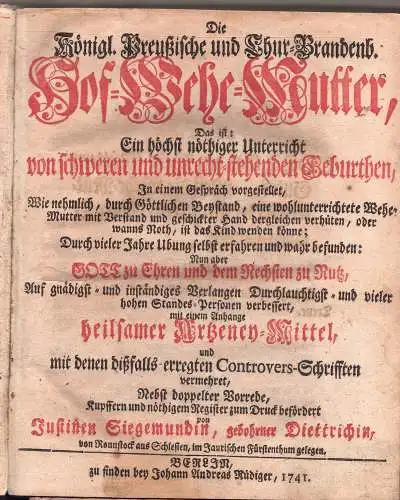 Die
Königl. Preußische und Chur-Brandenb.
Hof-Wehe-Mutter,
Das ist:
Ein höchst nöthiger Unterricht
von schweren und unrecht-stehenden Geburthen,
In einem Gespräch vorgestellet,
Wie nehmlich, durch Göttlichen Beystand, eine wohlunterrichtete Wehe-
Mutter mit Verstand und geschickter Hand dergleichen verhüten, oder
wanns Noth, ist das Kind wenden könne;
Durch vieler Jahre Ubung selbst erfahren und wahr befunden:
Nun aber
GOTT zu Ehren und dem Nechsten zu Nutz,
Auf gnädigst- und inständiges Verlangen Durchlauchtigst- und vieler
hohen Standes-Personen verbessert,
mit einem Anhange
heilsamer Artzeney-Mittel,
und
mit denen dißfalls erregten Controvers-Schrifften
vermehret,
Nebst doppelter Vorrede,
Kupffern und nöthigem Register zum Druck befördert
von
Justinen Siegemundin, gebohrner Diettrichin,
von Ronnstock aus Schlesien, im Jaurischen Fürstenthum gelegen.
BERLIN,
zu finden bey Johann Andreas Rüdiger, 1741.